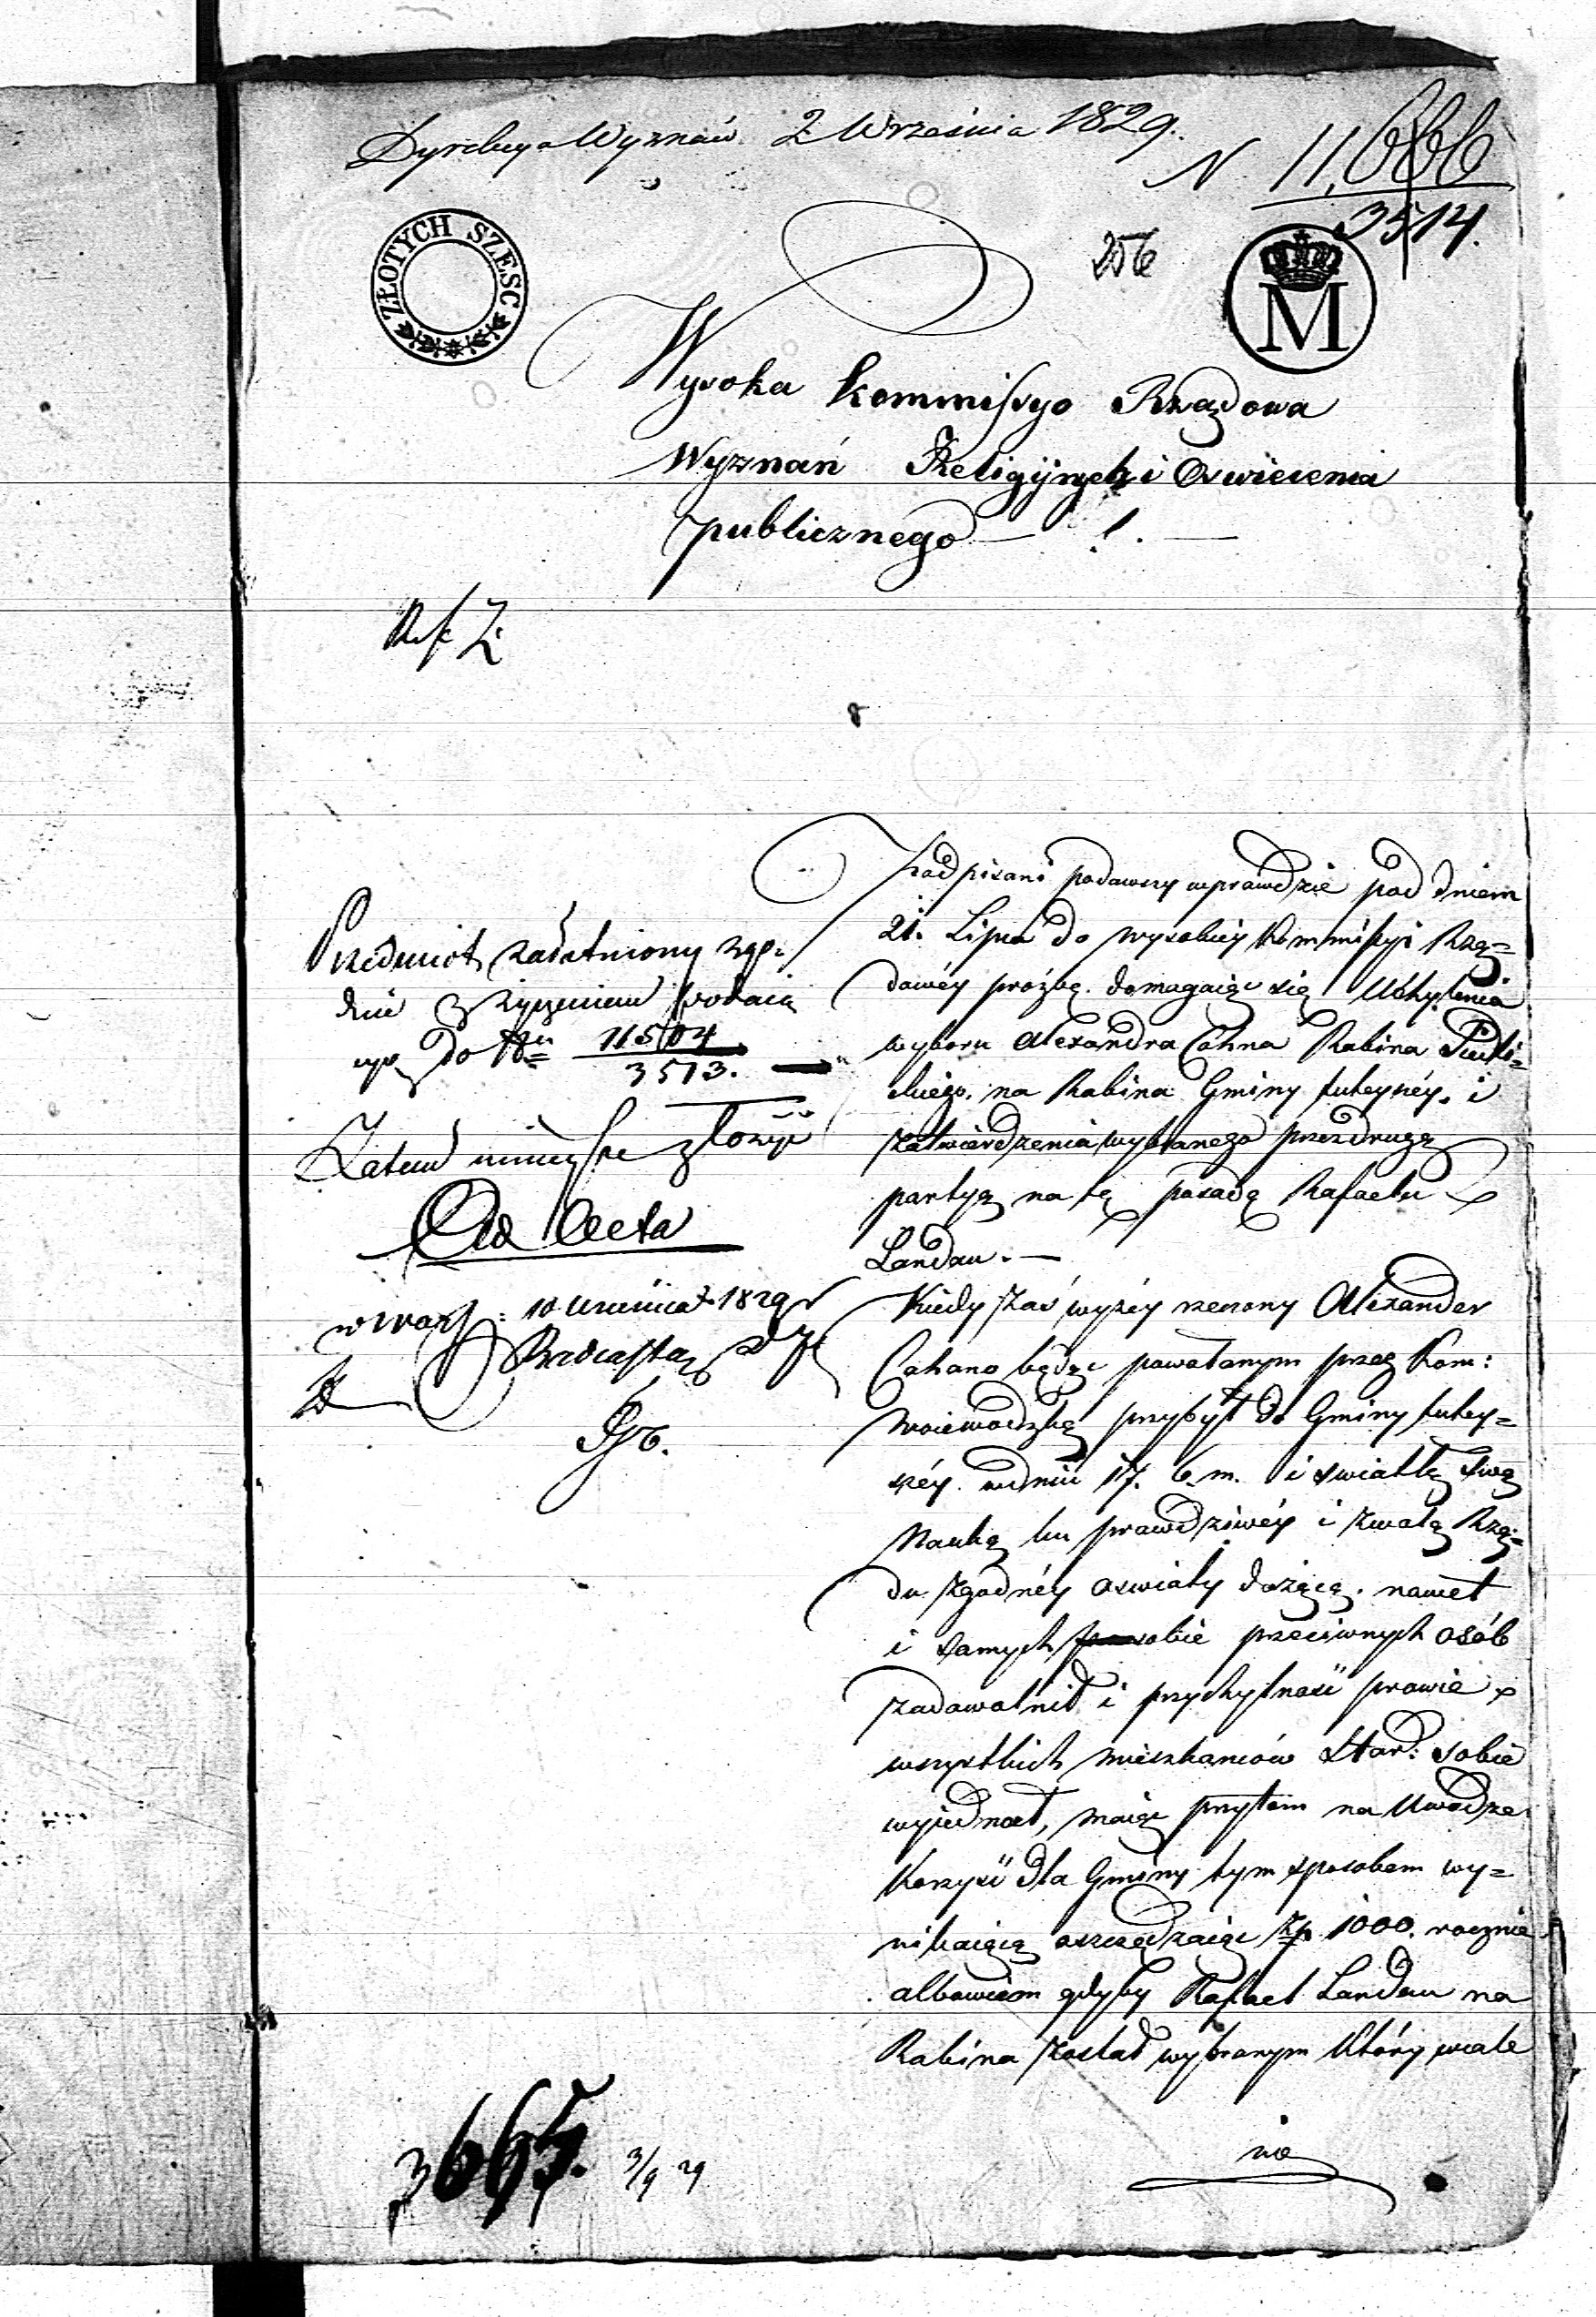 Dyrekcya Wyznań 2 Września 1829.
N 11,666
3514.
256
ZŁOTYCH SZESC
M
Wysoka Kommissyo Rządowa
Wyznań Religijnych i Oswiecenia
publicznego !
Przedmiot załatwiony zgo
dnie z
do Nru 11504
3513.
Zatem ninieysze złożyć
Ad Acta
w Warsz: 10 Września 1829 r
Podpisani podawszy wprawdzie pod dniem
21. Lipca do wysokiey Kommissyi Rzą=
dowéy prożbę domagaiąc się Uchylenia
wyboru Alexandra Cahna Rabina
na Rabina Gminy tuteyszéy, i
zatwierdzenia wybranego przez drugą
partyą na tę posadę Rafaela
Landau. —
Kiedy zaś wyżéy rzeczony Alexander
Cahano będąc powołanym przez Kom:
Woiewodzką przybył do Gminy tutey=
széy w dniu 17. b. m. i swiatłą swą
Nauką ku prawdziwéy i z wolą Rzą=
du zgodnéy oswiaty dążącą. nawet
i samych sobie przeciwnych osób
zadowolnił i przychylność prawie
wszystkich mieszkańców Star: sobie
wyiednał, maiąc przytem na Uwadze
Korzyść dla Gminy tym sposobem wy=
nikaiącą oszczędzaiąc Zp 1000. rocznie
albowiem gdyby Rafael Landau na
Rabina został wybranym Który wcale
nie
3665. 3/9 29